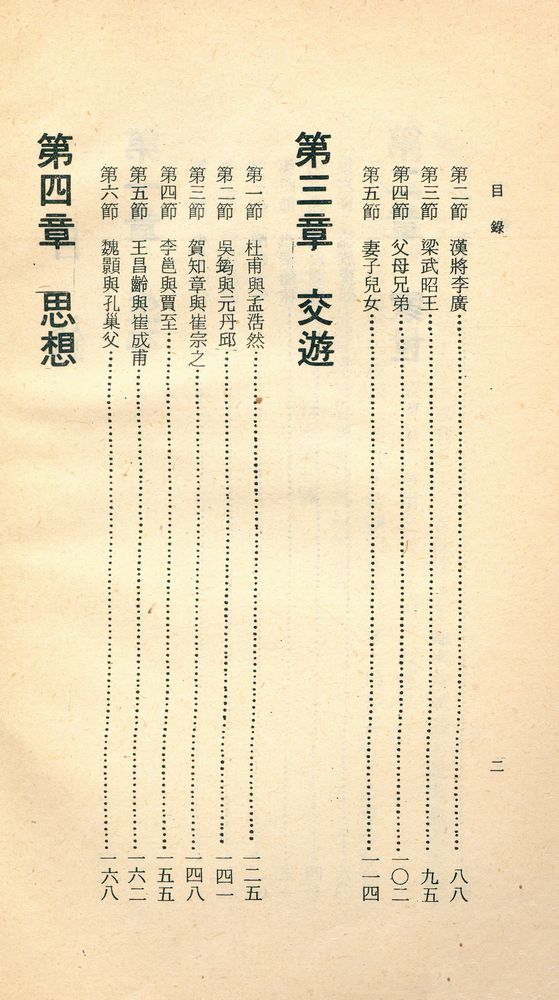 目錄
二
第二節 漢將李廣……八八
第三節 梁武昭王……九五
第四節 父母兄弟……一〇二
第五節 妻子兒女……一一四
第三章 交遊
第一節 杜甫與孟浩然……一二五
第二節 吳筠與元丹邱……一四一
第三節 賀知章與崔宗之……一四八
第四節 李邕與賈至……一五五
第五節 王昌齡與崔成甫……一六二
第六節 魏顥與孔巢父……一六八
第四章 思想